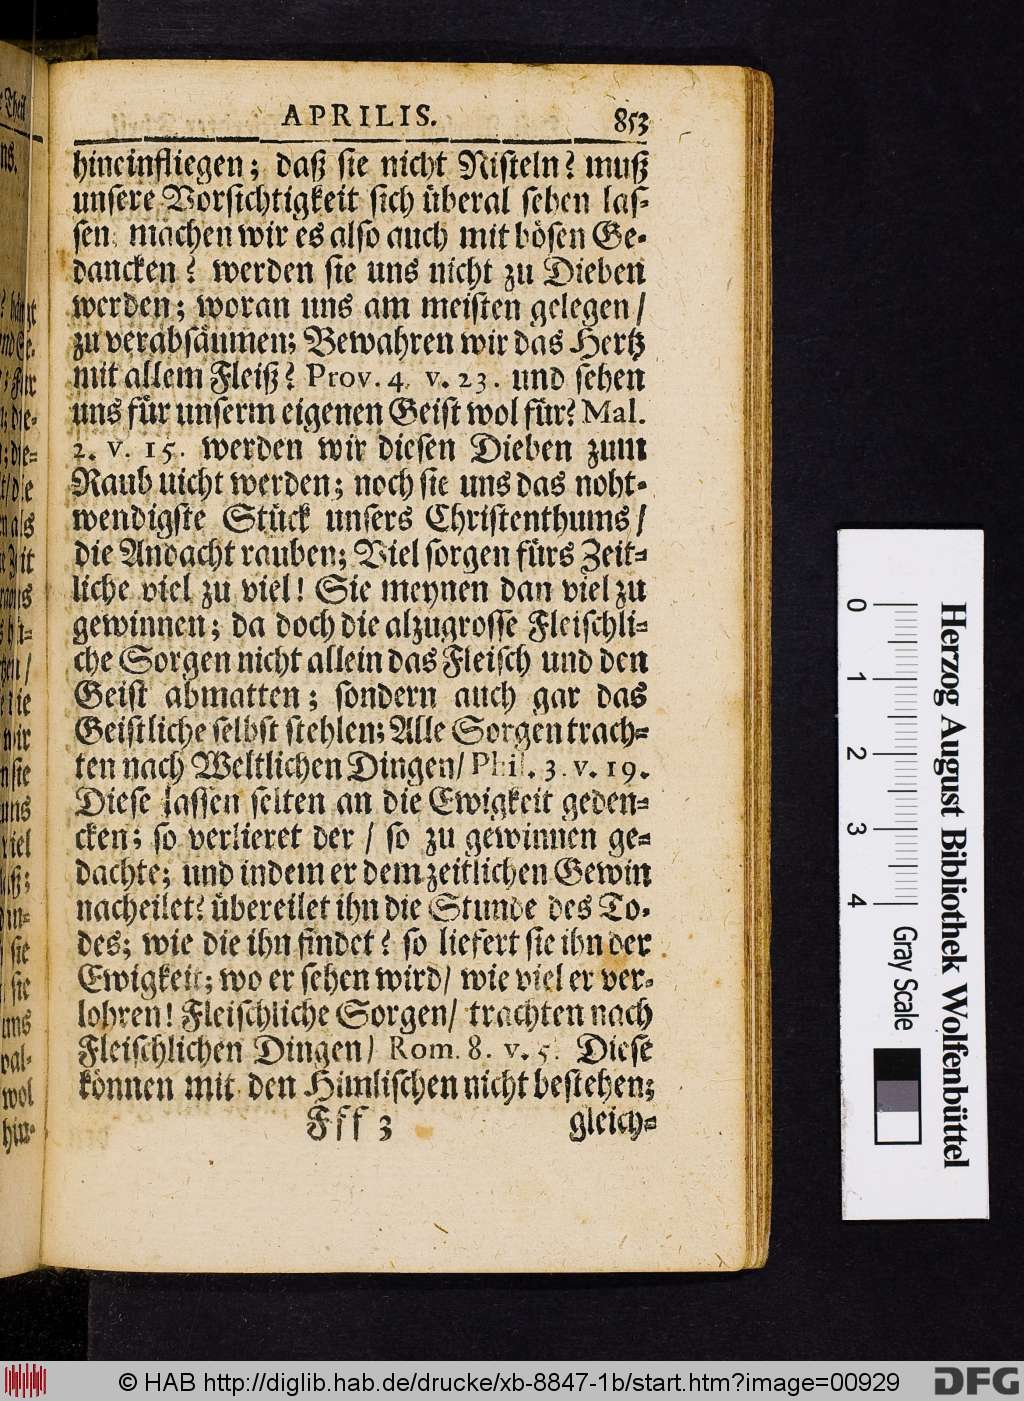 APRILIS. 853
hineinfliegen; daß sie nicht Nisteln? muß
unsere Vorsichtigkeit sich überal sehen las-
sen, machen wir es also auch mit bösen Ge-
dancken? werden sie uns nicht zu Dieben
werden; woran uns am meisten gelegen/
zu verabsäumen; Bewahren wir das Hertz
mit allem Fleiß? Prov. 4. v. 23. und sehen
uns für unserm eigenen Geist wol für? Mal.
2. v. 15. werden wir diesen Dieben zum
Raub uicht werden; noch sie uns das noht-
wendigste Stück unsers Christenthums/
die Andacht rauben; Viel sorgen fürs Zeit-
liche viel zu viel! Sie meynen dan viel zu
gewinnen; da doch die alzugrosse Fleischli-
che Sorgen nicht allein das Fleisch und den
Geist abmatten; sondern auch gar das
Geistliche selbst stehlen; Alle Sorgen trach-
ten nach Weltlichen Dingen/ Phil. 3. v. 19.
Diese lassen selten an die Ewigkeit geden-
cken; so verlieret der / so zu gewinnen ge-
dachte; und indem er dem zeitlichen Gewin
nacheilet? übereilet ihn die Stunde des To-
des; wie die ihn findet? so liefert sie ihn der
Ewigkeit; wo er sehen wird/ wie viel er ver-
lohren! Fleischliche Sorgen/ trachten nach
Fleischlichen Dingen/ Rom. 8. v. 5. Diese
können mit den Himlischen nicht bestehen;
Fff 3 gleich-
0 1 2 3 4
Gray Scale
Herzog August Bibliothek Wolfenbüttel
© HAB http://diglib.hab.de/drucke/xb-8847-1b/start.htm?image=00929
DFG